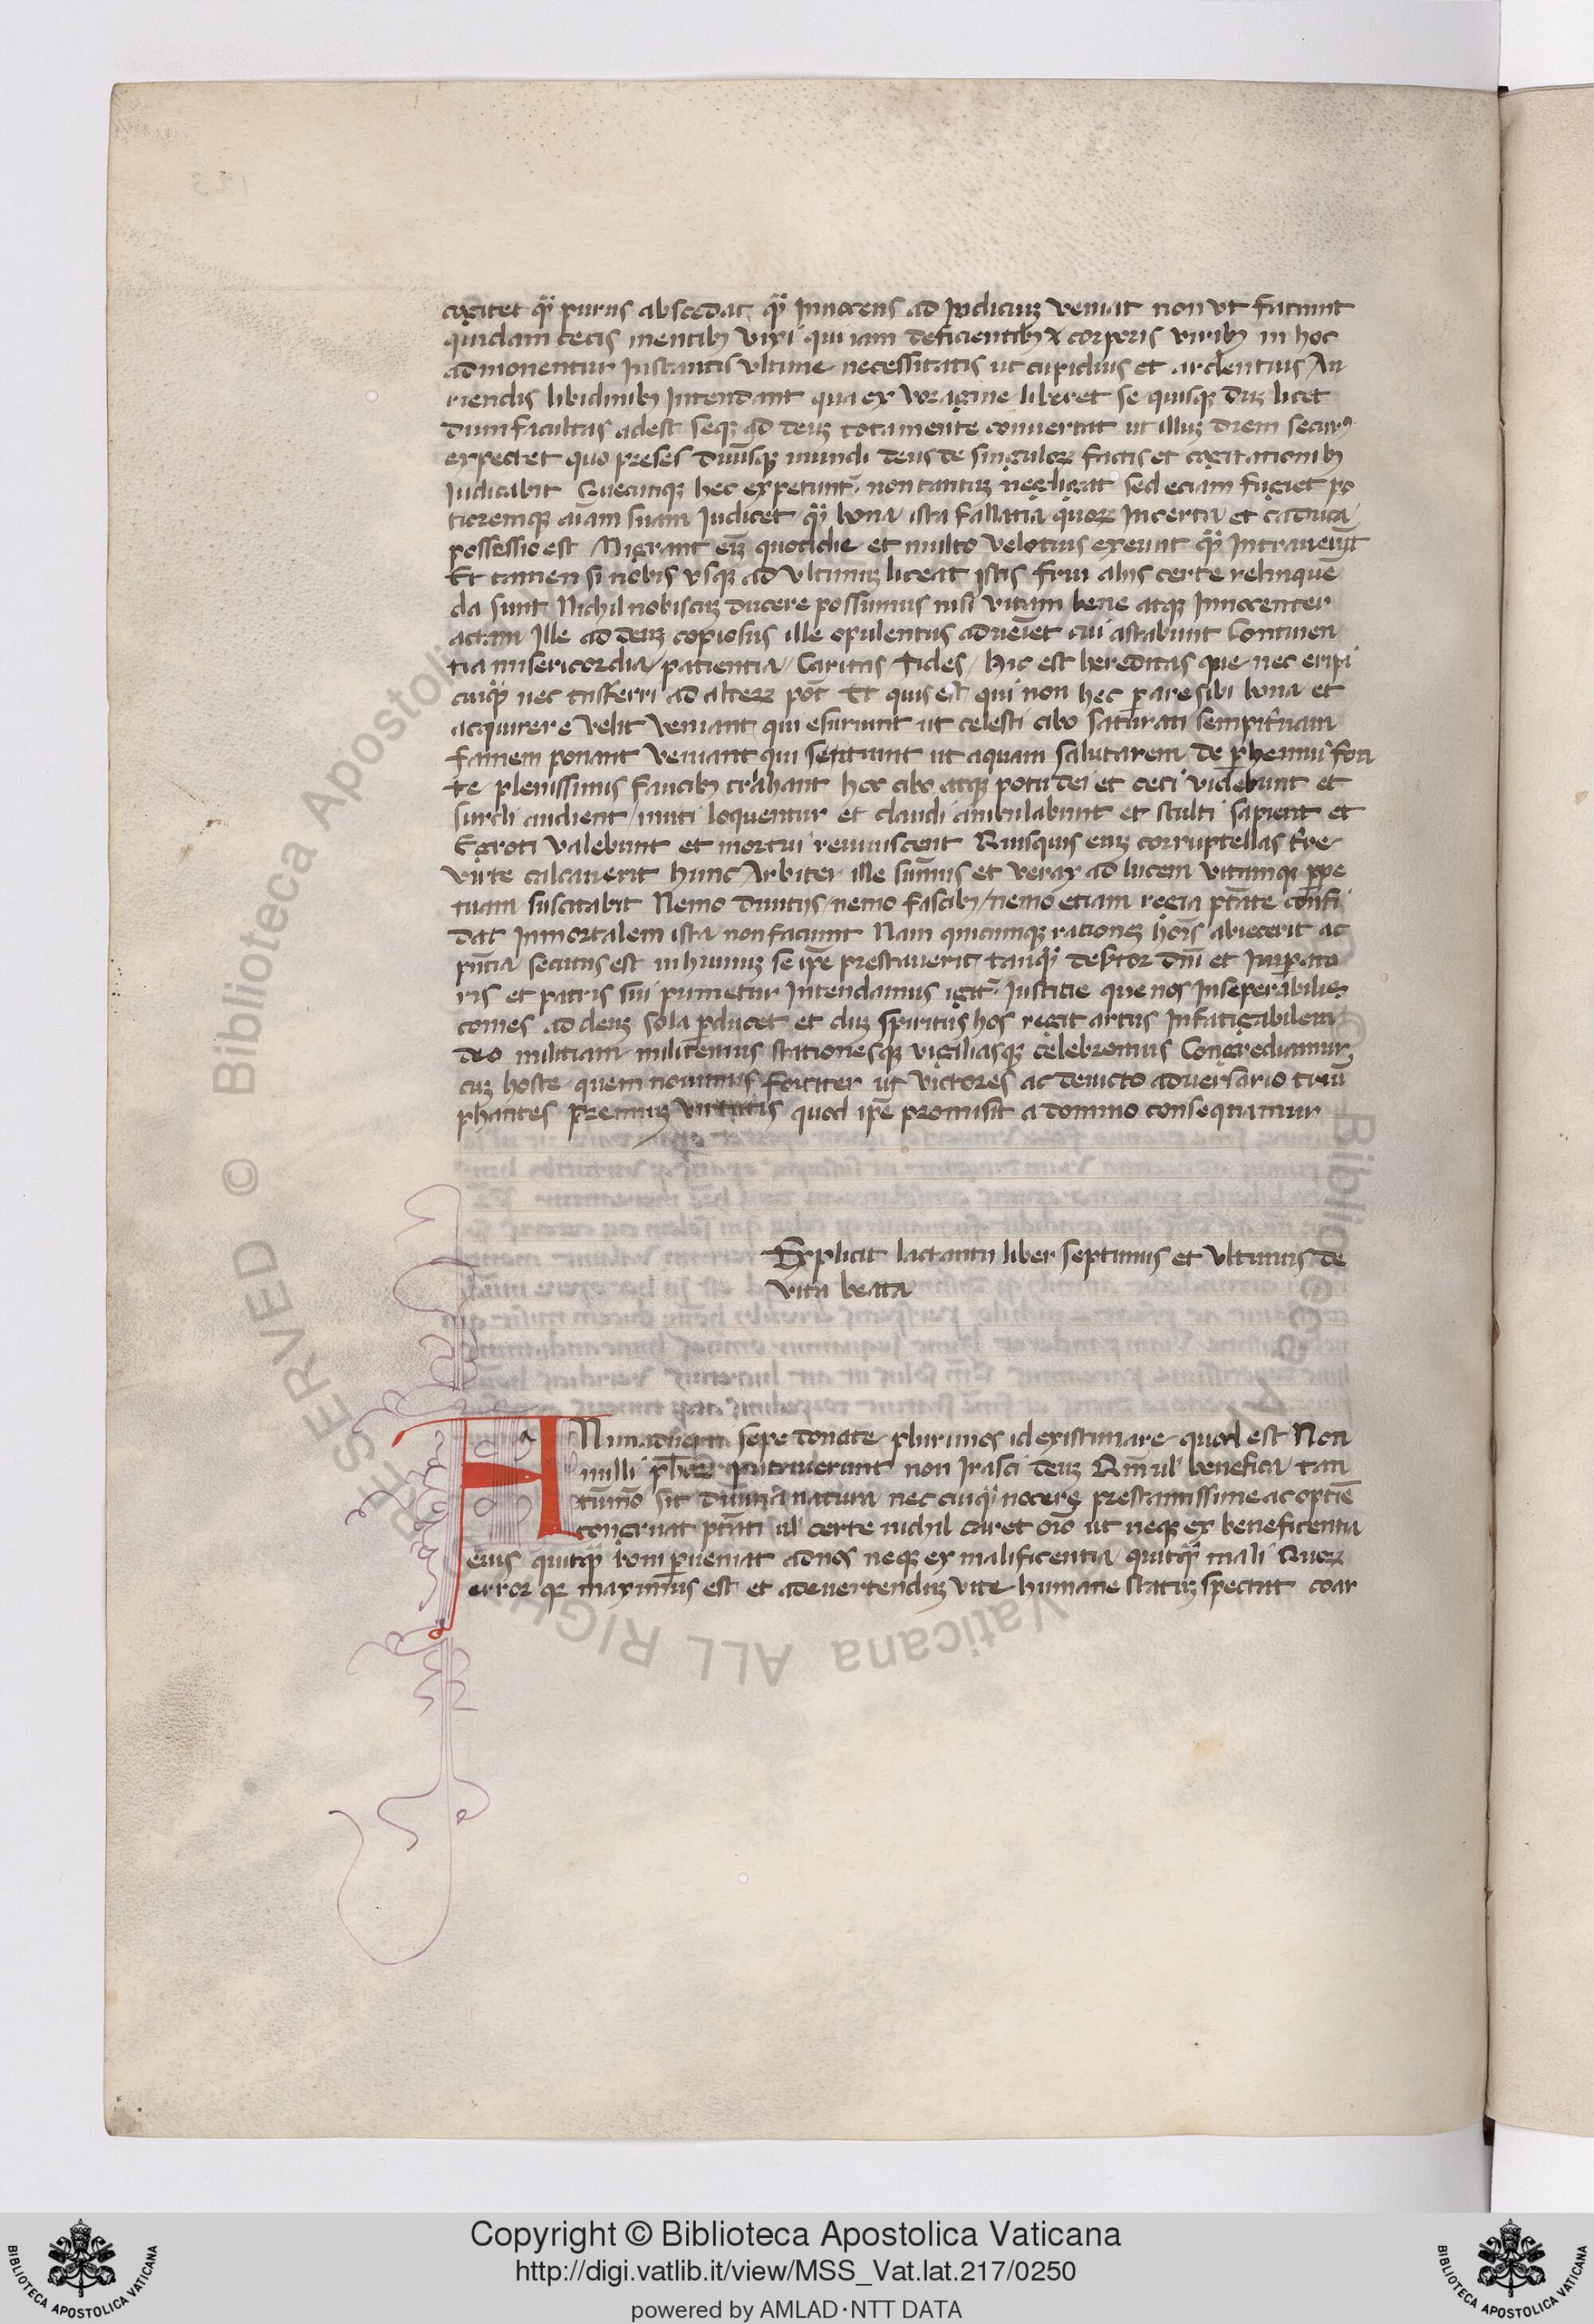 cogitet qͣ purus abscedat qͣ Innocens ad Iudiciuꝫ veniat non vt faciunt
quidam cecis mentibꝫ vixi qui iam deficientibꝫ corporis viribꝫ in hoc
admonentur Instantis vltime necessitatis ut cupidius et ardentius Au
riendis libidinibꝫ Intendant qua ex voragine liberet se quisqꝫ duꝫ licet
dum facultas adest seqꝫ ad deuꝫ tota mente convertat ut illuꝫ diem securꝰ
expectet quo preses diuīsqꝫ mundi deus de singuloꝝ factis et cogitationibꝫ
Iudicabit Quecunqꝫ hec expetunt non tantuꝫ negligat sed eciam fugiet po
tioremqꝫ aīam suam Iudicet qͣ bona ista fallacia quoꝝ Incerta et caduca
possessio est Migrant eīꝫ quotidie et multo velotius exeunt qͣ Intrauerūt
Et tamen si nobis vsqꝫ ad vltimuꝫ liceat istis frui alijs certe relinquē
da sunt Nichil nobiscuꝫ ducere possumus nisi vitam bene atqꝫ Innocenter
actam Ille ad deuꝫ copiosus ille opulentus adueīet cui astabunt Continen
tia misericordia / patientia / Caritas fides / hic est hereditas que nec eripi
cuiqͣ nec tnsferri ad alteꝝ pot̄ Et quis est qui non hec parare sibi bona et
acquirere velit veniant qui esuriunt ut celesti cibo saturati sempit̄nam
famem ponant veniant qui sentiunt ut aquam salutarem de perhenni fon
te plenissimis faucibꝫ trahant hoc cibo atqꝫ potu dei et ceci videbunt et
surdi audient / muti loquentur et claudi ambulabunt et stulti sapient et
Egroti valebunt et mortui reuiuiscent Quisquis enꝫ corruptellas t̄re
virte calcauerit hunc Arbiter ille sum̄us et verax ad lucem vitamqꝫ ꝑpe
tuam suscitabit Nemo diuitijs / nemo fascibꝫ / nemo etiam regia ptāte confi
dat Inmortalem ista non faciunt Nam quicunqꝫ rationeꝫ hoīs abiecerit ac
pn̄tia secutus est in humuꝫ se ip̄e prestauerit tanqͣ desertor dn̄i et Imperato
ris et patris sui punietur Intendamus igitͬ Iusticie que nos Inseperabilis
comes ad deuꝫ sola ꝑducet et duꝫ spiritus hos regit artus Infatigabilem
deo militiam militemus stationesqꝫ vigiliasqꝫ celebremus Congrediamur
cuꝫ hoste quem nouimus fortiter ut victores ac deuicto aduersario triū
phantes premiuꝫ virtutis quod ip̄e promisit a domino consequamur
Explicit lactantii liber septimus et vltimus de
vita beata
ANimaduerti sepe donate plurimos id existimare quod est Non
nulli ph̄oꝝ putauerunt non Irasci deuꝫ Qm̄ uł benefica tan
tūmō sit diuina natura nec cuiqͣ nocere prestantissime ac optīe
congruat ptāti uł certe nichil curet oīo ut neqꝫ ex beneficentia
eius quitqͣ boni ꝑueniat ad nos neqꝫ ex malificentia quitqͣ mali Quoꝝ
error qꝫ maximus est et ad euertenduꝫ vite humane statuꝫ spectat coar
Copyright © Biblioteca Apostolica Vaticana
http://digi.vatlib.it/view/MSS_Vat.lat.217/0250
powered by AMLAD·NTT DATA
BIBLIOTECA APOSTOLICA VATICANA
BIBLIOTECA APOSTOLICA VATICANA